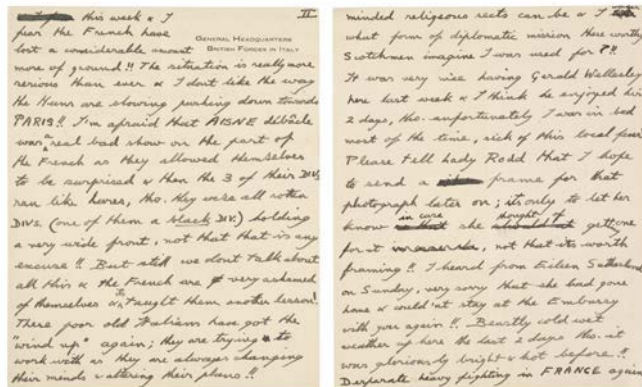 this week & I
II
GENERAL HEADQUARTERS
BRITISH FORCES IN ITALY
fear the French have
lost a considerable amount
more of ground!! The situation is really more
serious than ever & I dont like the way
the Huns are slowing pushing down towards
PARIS!! I'm afraid that AISNE débâcle
was a real bad show on the part of
the French as they allowed themselves
to be surprised & then the 3 of their DIVS
ran like hares, tho. they were all rotten
DIVS. (one of them a black DIV.) holding
a very wide front, not that that is any
excuse!! But still we dont talk about
all this & the French are very ashamed
of themselves & taught them another lesson!
These poor old Italians have got the
"wind up" again; they are trying to
work with as they are always changing
their minds & altering their plans!!
minded religeous sects can be & I
what form of diplomatic mission these worthy
Scotchmen imagine I was used for?!!
It was very nice having Gerald Wellesley
here last week & I think he enjoyed his
2 days, tho. unfortunately I was in bed
most of the time, sick of this local fever
Please tell Lady Rodd that I hope
to send a frame for that
photograph later on; its only to let her
know in case she thought of getting one
for it, not that its worth
framing!! I heard from Eileen Sutherland
on Sunday, very sorry that she had gone
home & would'nt stay at the Embassy
with you again!! Beastly cold wet
weather up here the last 2 days tho. it
was gloriously bright & hot before!!
Desperate heavy fighting in FRANCE again